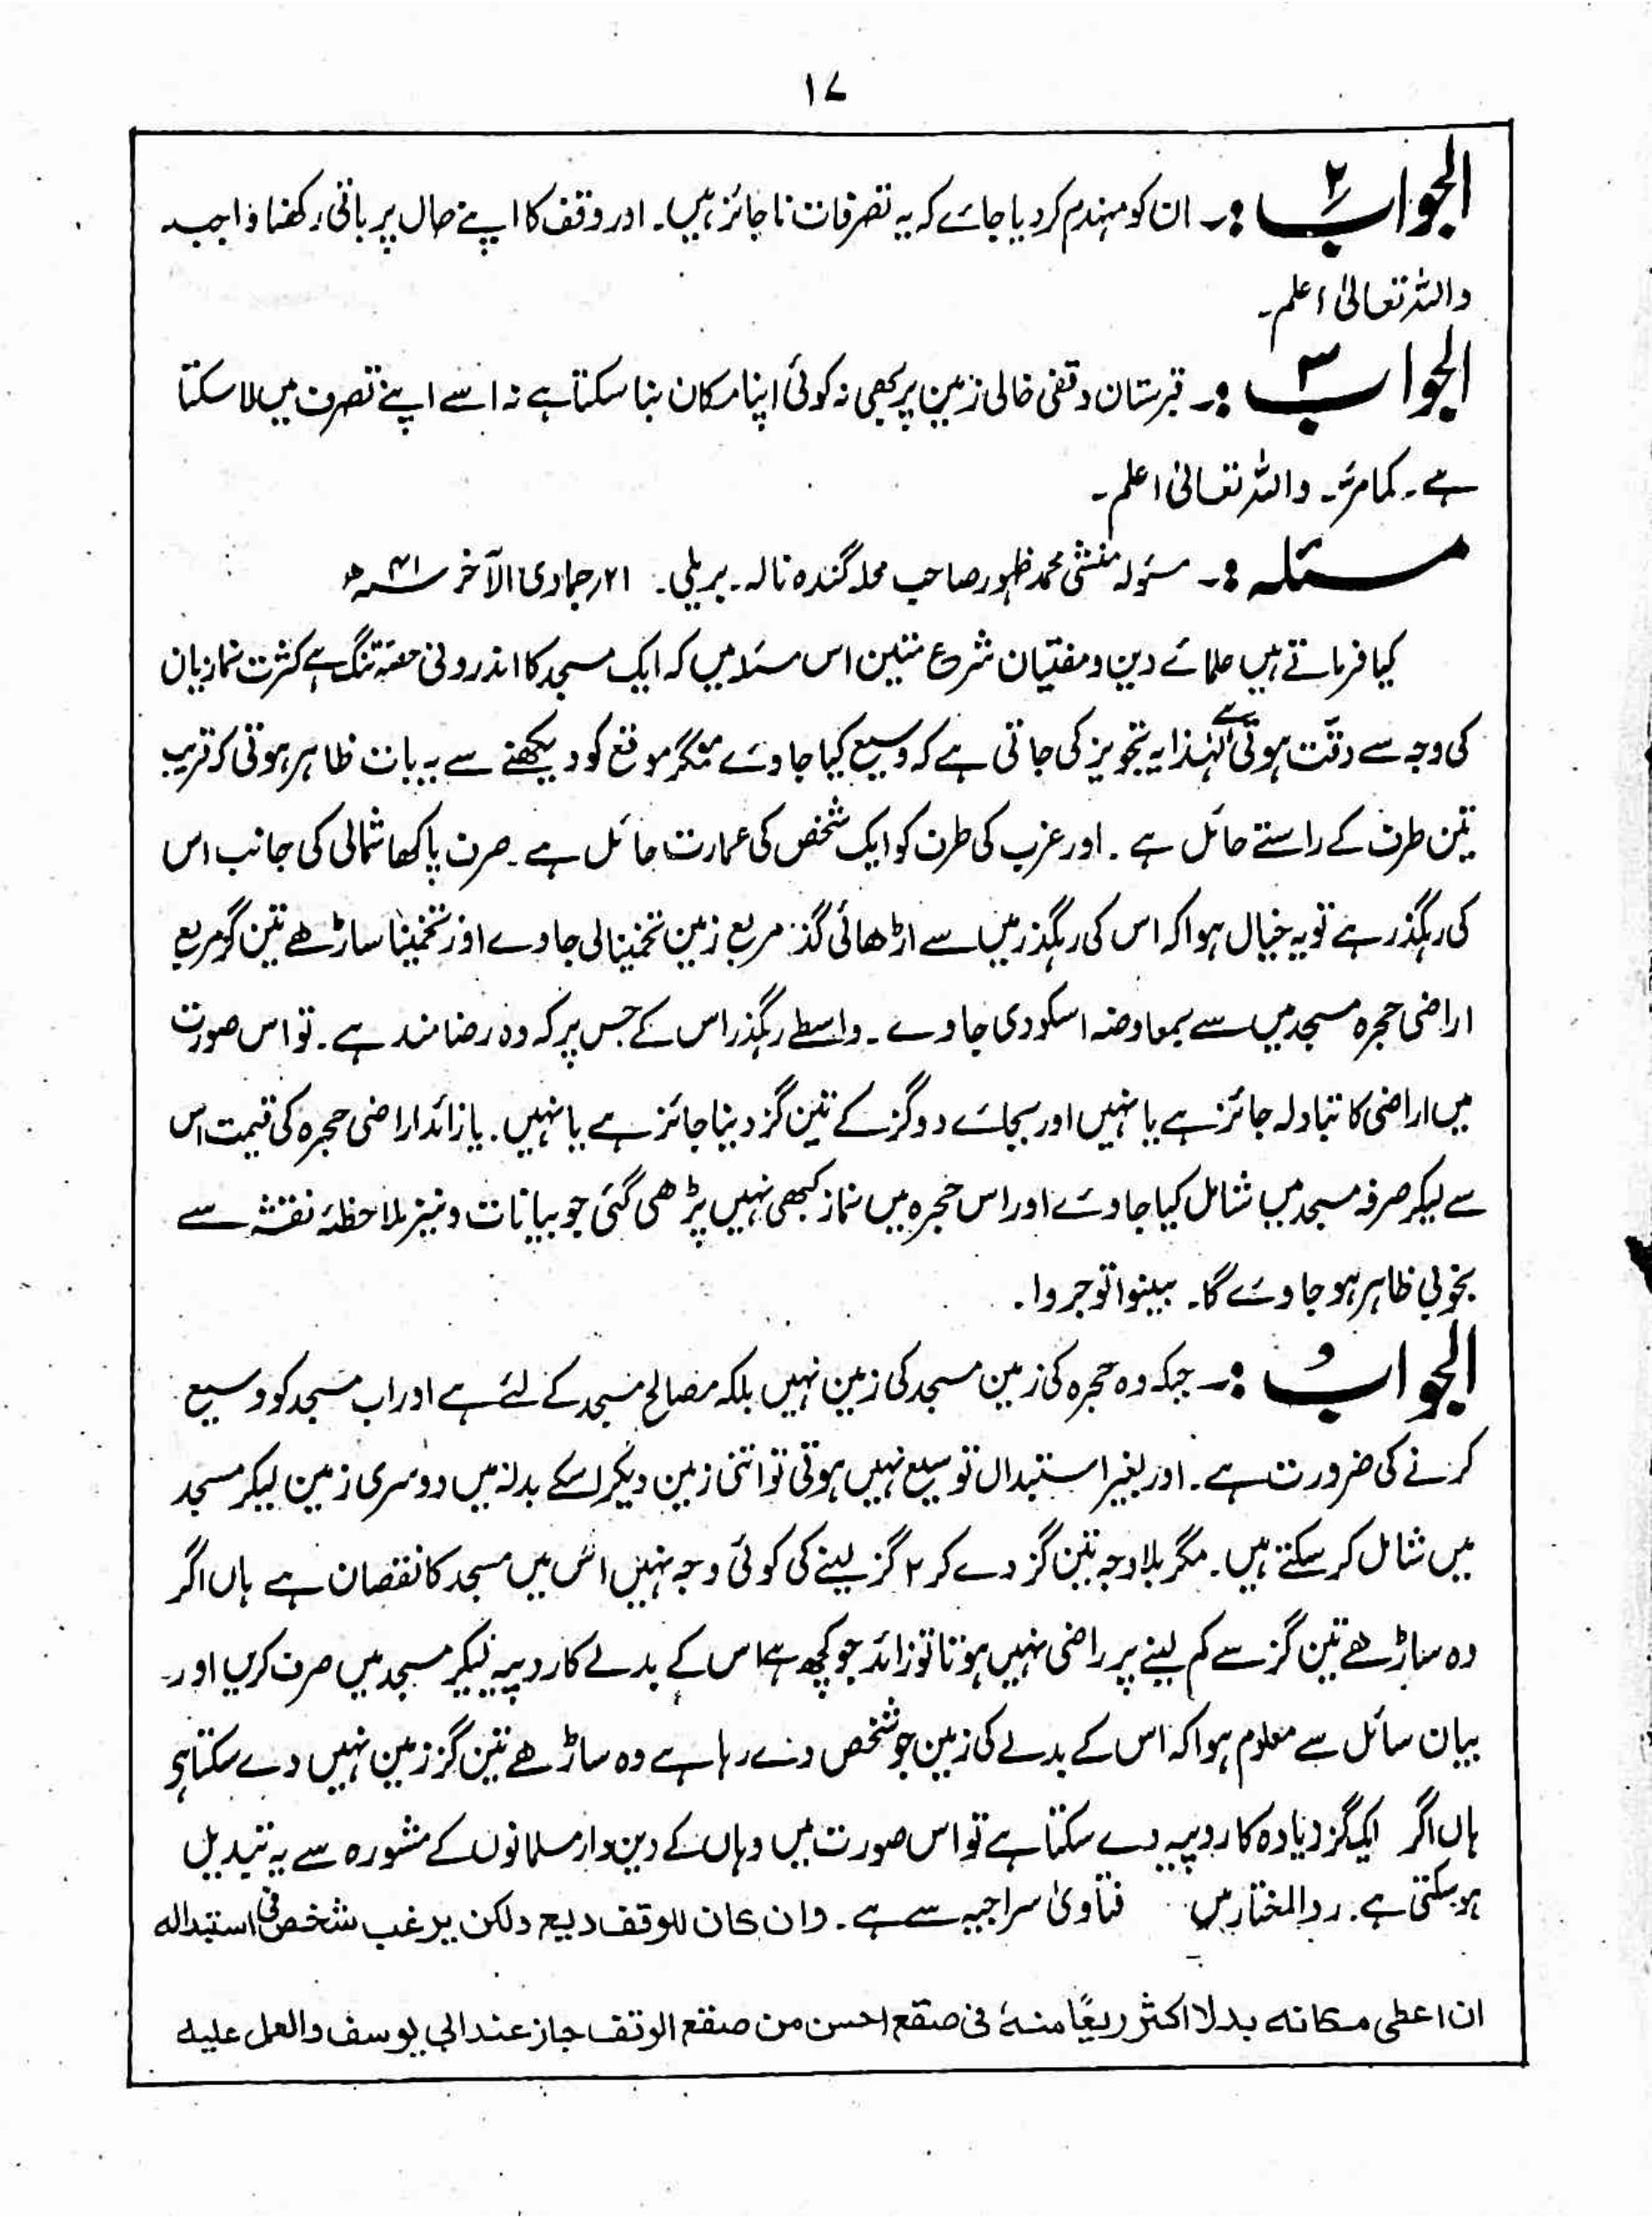 ۱۷
الجواب ۲ :۔ ان کو منہدم کر دیا جائے کہ یہ تصرفات ناجائز ہیں۔ اور وقف کا اپنے حال پر باقی رکھنا واجب
واللہ تعالیٰ اعلم۔
الجواب ۳ :۔ قبرستان وقفی خالی زمین پر بھی نہ کوئی اپنا مکان بنا سکتا ہے نہ اسے اپنے تصرف میں لا سکتا
ہے۔ کما مرّ۔ واللہ تعالیٰ اعلم۔
مسئلہ :۔ مسئولہ منشی محمد ظہور صاحب محلہ گندہ نالہ۔ بریلی۔ ۲۱ر جمادی الآخر ۴۱ھ
کیا فرماتے ہیں علمائے دین و مفتیان شرع متین اس مسئلہ میں کہ ایک مسجد کا اندرونی حصّہ تنگ ہے کثرت نمازیان
کی وجہ سے دقّت ہوتی ہے لہٰذا یہ تجویز کی جاتی ہے کہ وسیع کیا جاوے مگر موقع کو دیکھنے سے یہ بات ظاہر ہوتی کہ قریب
تین طرف کے راستے حائل ہے۔ اور غرب کی طرف کو ایک شخص کی عمارت حائل ہے۔ صرف پاکھا شمالی کی جانب اس
کی رہگذر ہے تو یہ خیال ہوا کہ اس کی رہگذر میں سے اڑھائی گذ مربع زمین تخمینا لی جاوے اور تخمینًا ساڑھے تین گز مربع
اراضی حجرہ مسجد میں سے بمعاوضہ اسکو دی جاوے۔ واسطے رہگذر اس کے جس پر کہ وہ رضا مند ہے۔ تو اس صورت
میں اراضی کا تبادلہ جائز ہے یا نہیں اور بجائے دو گز کے تین گز دینا جائز ہے یا نہیں۔ یا زائد اراضی حجرہ کی قیمت اس
سے لیکر صرفہ مسجد میں شامل کیا جاوے اور اس حجرہ میں نماز کبھی نہیں پڑھی گئی جو بیانات و نیز ملاحظۂ نقشہ سے
بخوبی ظاہر ہو جاوے گا۔ بینوا توجروا۔
الجواب :۔ جبکہ وہ حجرہ کی زمین مسجد کی زمین نہیں بلکہ مصالح مسجد کے لئے ہے اور اب مسجد کو وسیع
کرنے کی ضرورت ہے۔ اور بغیر استبدال توسیع نہیں ہوتی تو اتنی زمین دیکر اسکے بدلہ میں دوسری زمین لیکر مسجد
میں شامل کر سکتے ہیں۔ مگر بلا وجہ تین گز دے کر ۲ گز لینے کی کوئی وجہ نہیں اس میں مسجد کا نقصان ہے ہاں اگر
وہ ساڑھے تین گز سے کم لینے پر راضی نہیں ہوتا تو زائد جو کچھ ہے اس کے بدلے کا روپیہ لیکر مسجد میں صرف کریں اور
بیان سائل سے معلوم ہوا کہ اس کے بدلے کی زمین جو شخص دے رہا ہے وہ ساڑھے تین گز زمین نہیں دے سکتا ہے
ہاں اگر ایک گز زیادہ کا روپیہ دے سکتا ہے تو اس صورت میں وہاں کے دین دار مسلمانوں کے مشورہ سے یہ تبدیل
ہو سکتی ہے۔ رد المختار میں فتاویٰ سراجیہ سے ہے۔ وان کان للوقف ریع ولکن یرغب شخص فی استبدالہ
ان اعطی مکانہ بدلا اکثر ریعًا منہ فی صقع احسن من صقع الوقف جاز عند ابی یوسف والعمل علیہ